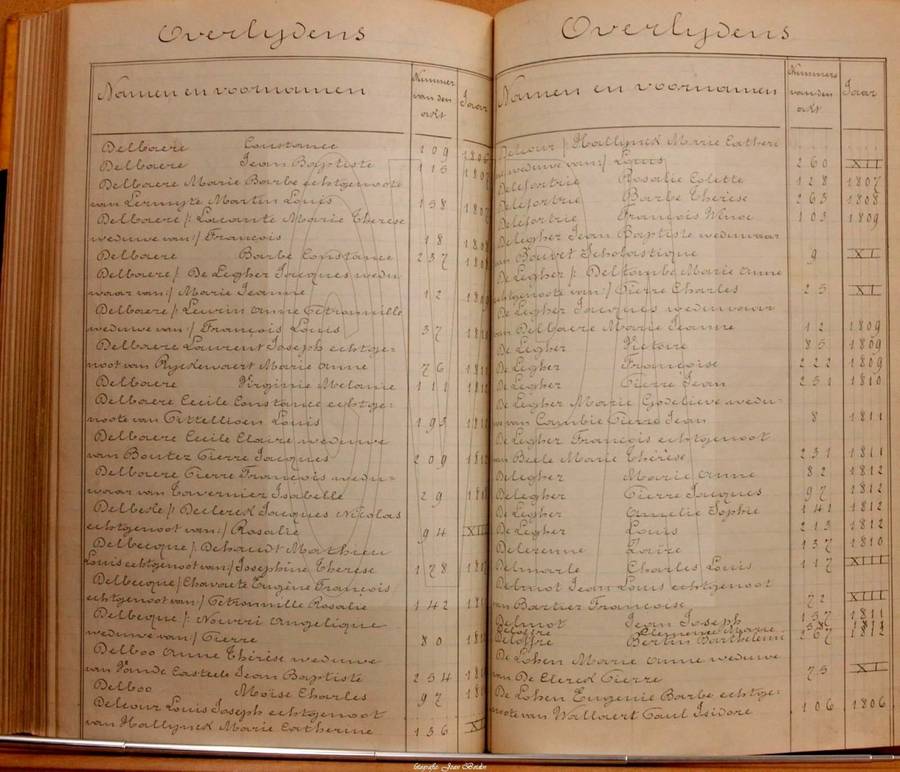 Overlydens
Namen en voornamen Nummer van den akt Jaar
Delbaere Constance 209
Delbaere Jean Baptiste 115
Delbaere Marie Barbe echtgenoote
van Lermyte Martin Louis 158
Delbaere /: Lacante Marie Therese
weduwe van :/ François 18
Delbaere Barbe Constance 237
Delbaere /: De Legher Jacques wedu-
waar van :/ Marie Jeanne 12
Delbaere /: Leurin Anne Petronnille
weduwe van :/ François Louis 37
Delbaere Laurent Joseph echtge-
noot van Ryckewaert Marie Anne 76
Delbaere Virginie Melanie 111
Delbaere Cecile Constance echtge-
noote van Pittellioen Louis 193
Delbaere Cecile Claire weduwe
van Boutez Pierre Jacques 209
Delbaere Pierre François wedu-
waar van Tavernier Isabelle 29
Delbeke /: Declerck Jacques Nicolas
echtgenoot van :/ Rosalie 94
Delbecque /: Dehaudt Mathieu
Louis echtgenoot van :/ Josephine Therese 178
Delbecque /: Chavaete Eugène François
echtgenoot van :/ Petronnille Rosalie 142
Delbeque /: Nouvri Angelique
weduwe van :/ Pierre 80
Delboo Anne Thérèse weduwe
van Vande Casteele Jean Baptiste 254
Delboo Moïse Charles 97
Delcour Louis Joseph echtgenoot
van Hallynck Marie Catherine 136
Overlydens
Namen en voornamen Nummers van den akt Jaar
Delcour /: Hallynck Marie Catheri
weduwe van :/ Louis 260 XII
Delefortrie Rosalie Colette 128 1807
Delefortrie Barbe Thérèse 263 1808
Delefortrie François Winoc 103 1809
Delegher Jean Baptiste weduwaar
van Bouvet Scholastique 9 XI
De Legher /: Delstombe Marie Anne
echtgenoote van :/ Pierre Charles 25 XI
De Legher Jacques weduwaar
van Delbaere Marie Jeanne 12 1809
De Legher Victoire 85 1809
De Legher Françoise 222 1809
De Legher Pierre Jean 251 1810
De Legher Marie Godelieve wedu-
van Combie Pierre Jean 8 1811
De Legher François echtgenoot
van Beele Marie Thérèse 231 1811
Delegher Marie Anne 82 1812
Delegher Pierre Jacques 97 1812
De Legher Amelie Sophie 141 1812
De Legher Louis 213 1812
Delezenne Louise 137 1810
Delmarle Charles Louis 117 XIII
Delmot Jean Louis echtgenoot
van Bartier Françoise 72 XIII
Delmot Jean Joseph 137 1811
Deloffre Clemence Marie
Deloffre Bertin Barthelemi 267 1812
De Lohen Marie Anne weduwe
van De Clerck Pierre 75 XI
De Lohen Eugenie Barbe echtge-
noote van Wallaert Paul Isidore 106 1806